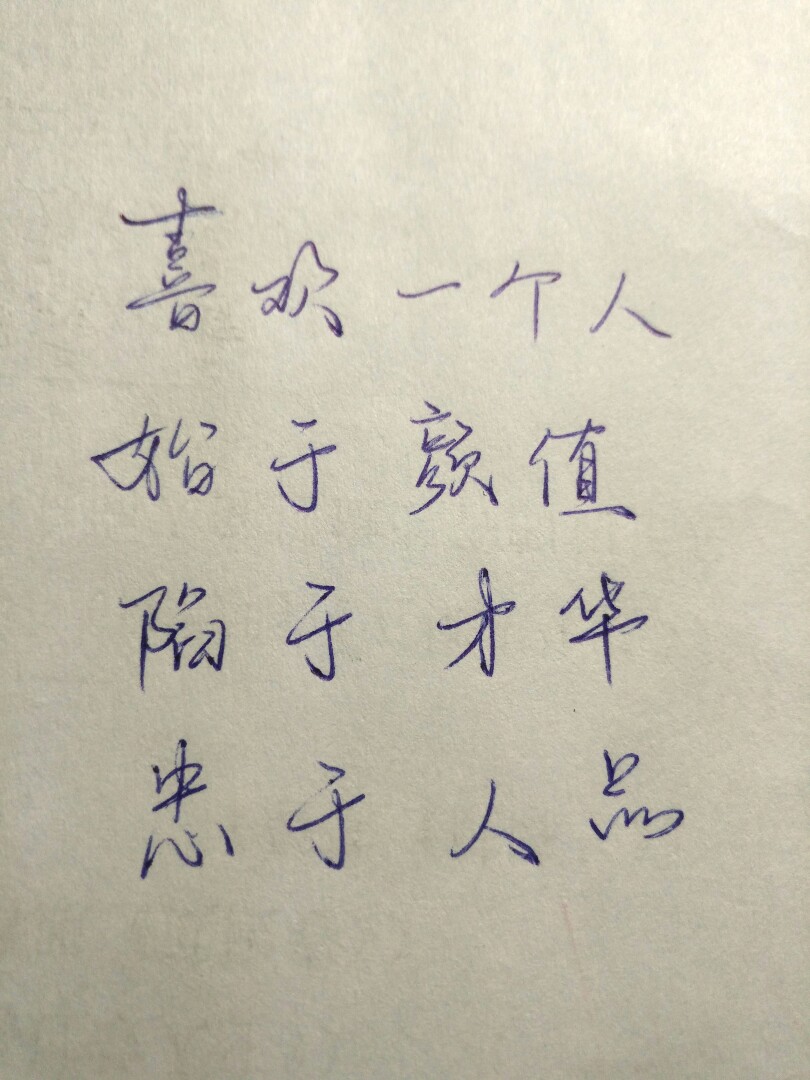 喜欢一个人
始于颜值
陷于才华
忠于人品